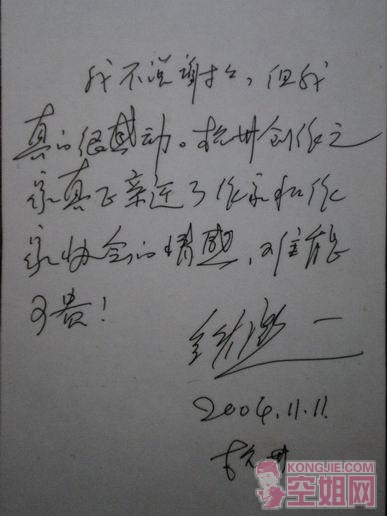 我不说谢谢，但我
真的很感动。杭州创作之
家真正亲近了作家和作
家协会的情感，难能
可贵！
2004.11.11.
杭州
KONGJIE.COM
空姐网